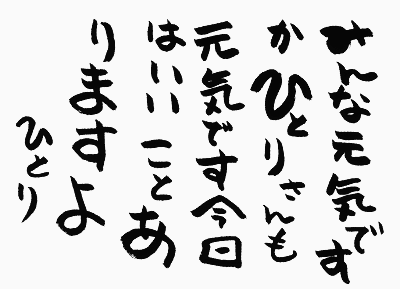 みんな元気です
かひとりさんも
元気です今日
はいいことあ
りますよ
ひとり